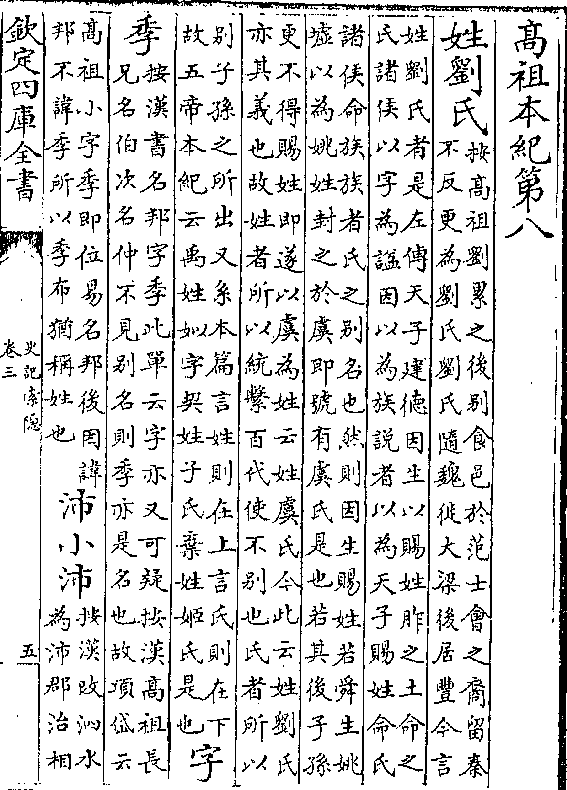 髙祖本紀第八
姓劉氏
按髙祖劉累之後别食邑於范士會之裔留秦
不反更為劉氏劉氏隨魏徙大梁後居豐今言
姓劉氏者是左傳天子建德因生以賜姓胙之土命之
氏諸侯以字為諡因以為族説者以為天子賜姓命氏
諸侯命族族者氏之别名也然則因生賜姓若舜生姚
墟以為姚姓封之於虞即號有虞氏是也若其後子孫
更不得賜姓即遂以虞為姓云姓虞氏今此云姓劉氏
亦其義也故姓者所以統繫百代使不别也氏者所以
别子孫之所出又系本篇言姓則在上言氏則在下
故五帝本紀云禹姓姒字契姓子氏棄姓姬氏是也
字
季
按漢書名邦字季此單云字亦又可疑按漢髙祖長
兄名伯次名仲不見别名則季亦是名也故項岱云
髙祖小字季即位易名邦後因諱
邦不諱季所以季布猶稱姓也
沛小沛
按漢改泗水
為沛郡治相
欽定四庫全書
史記索隠
卷三
五